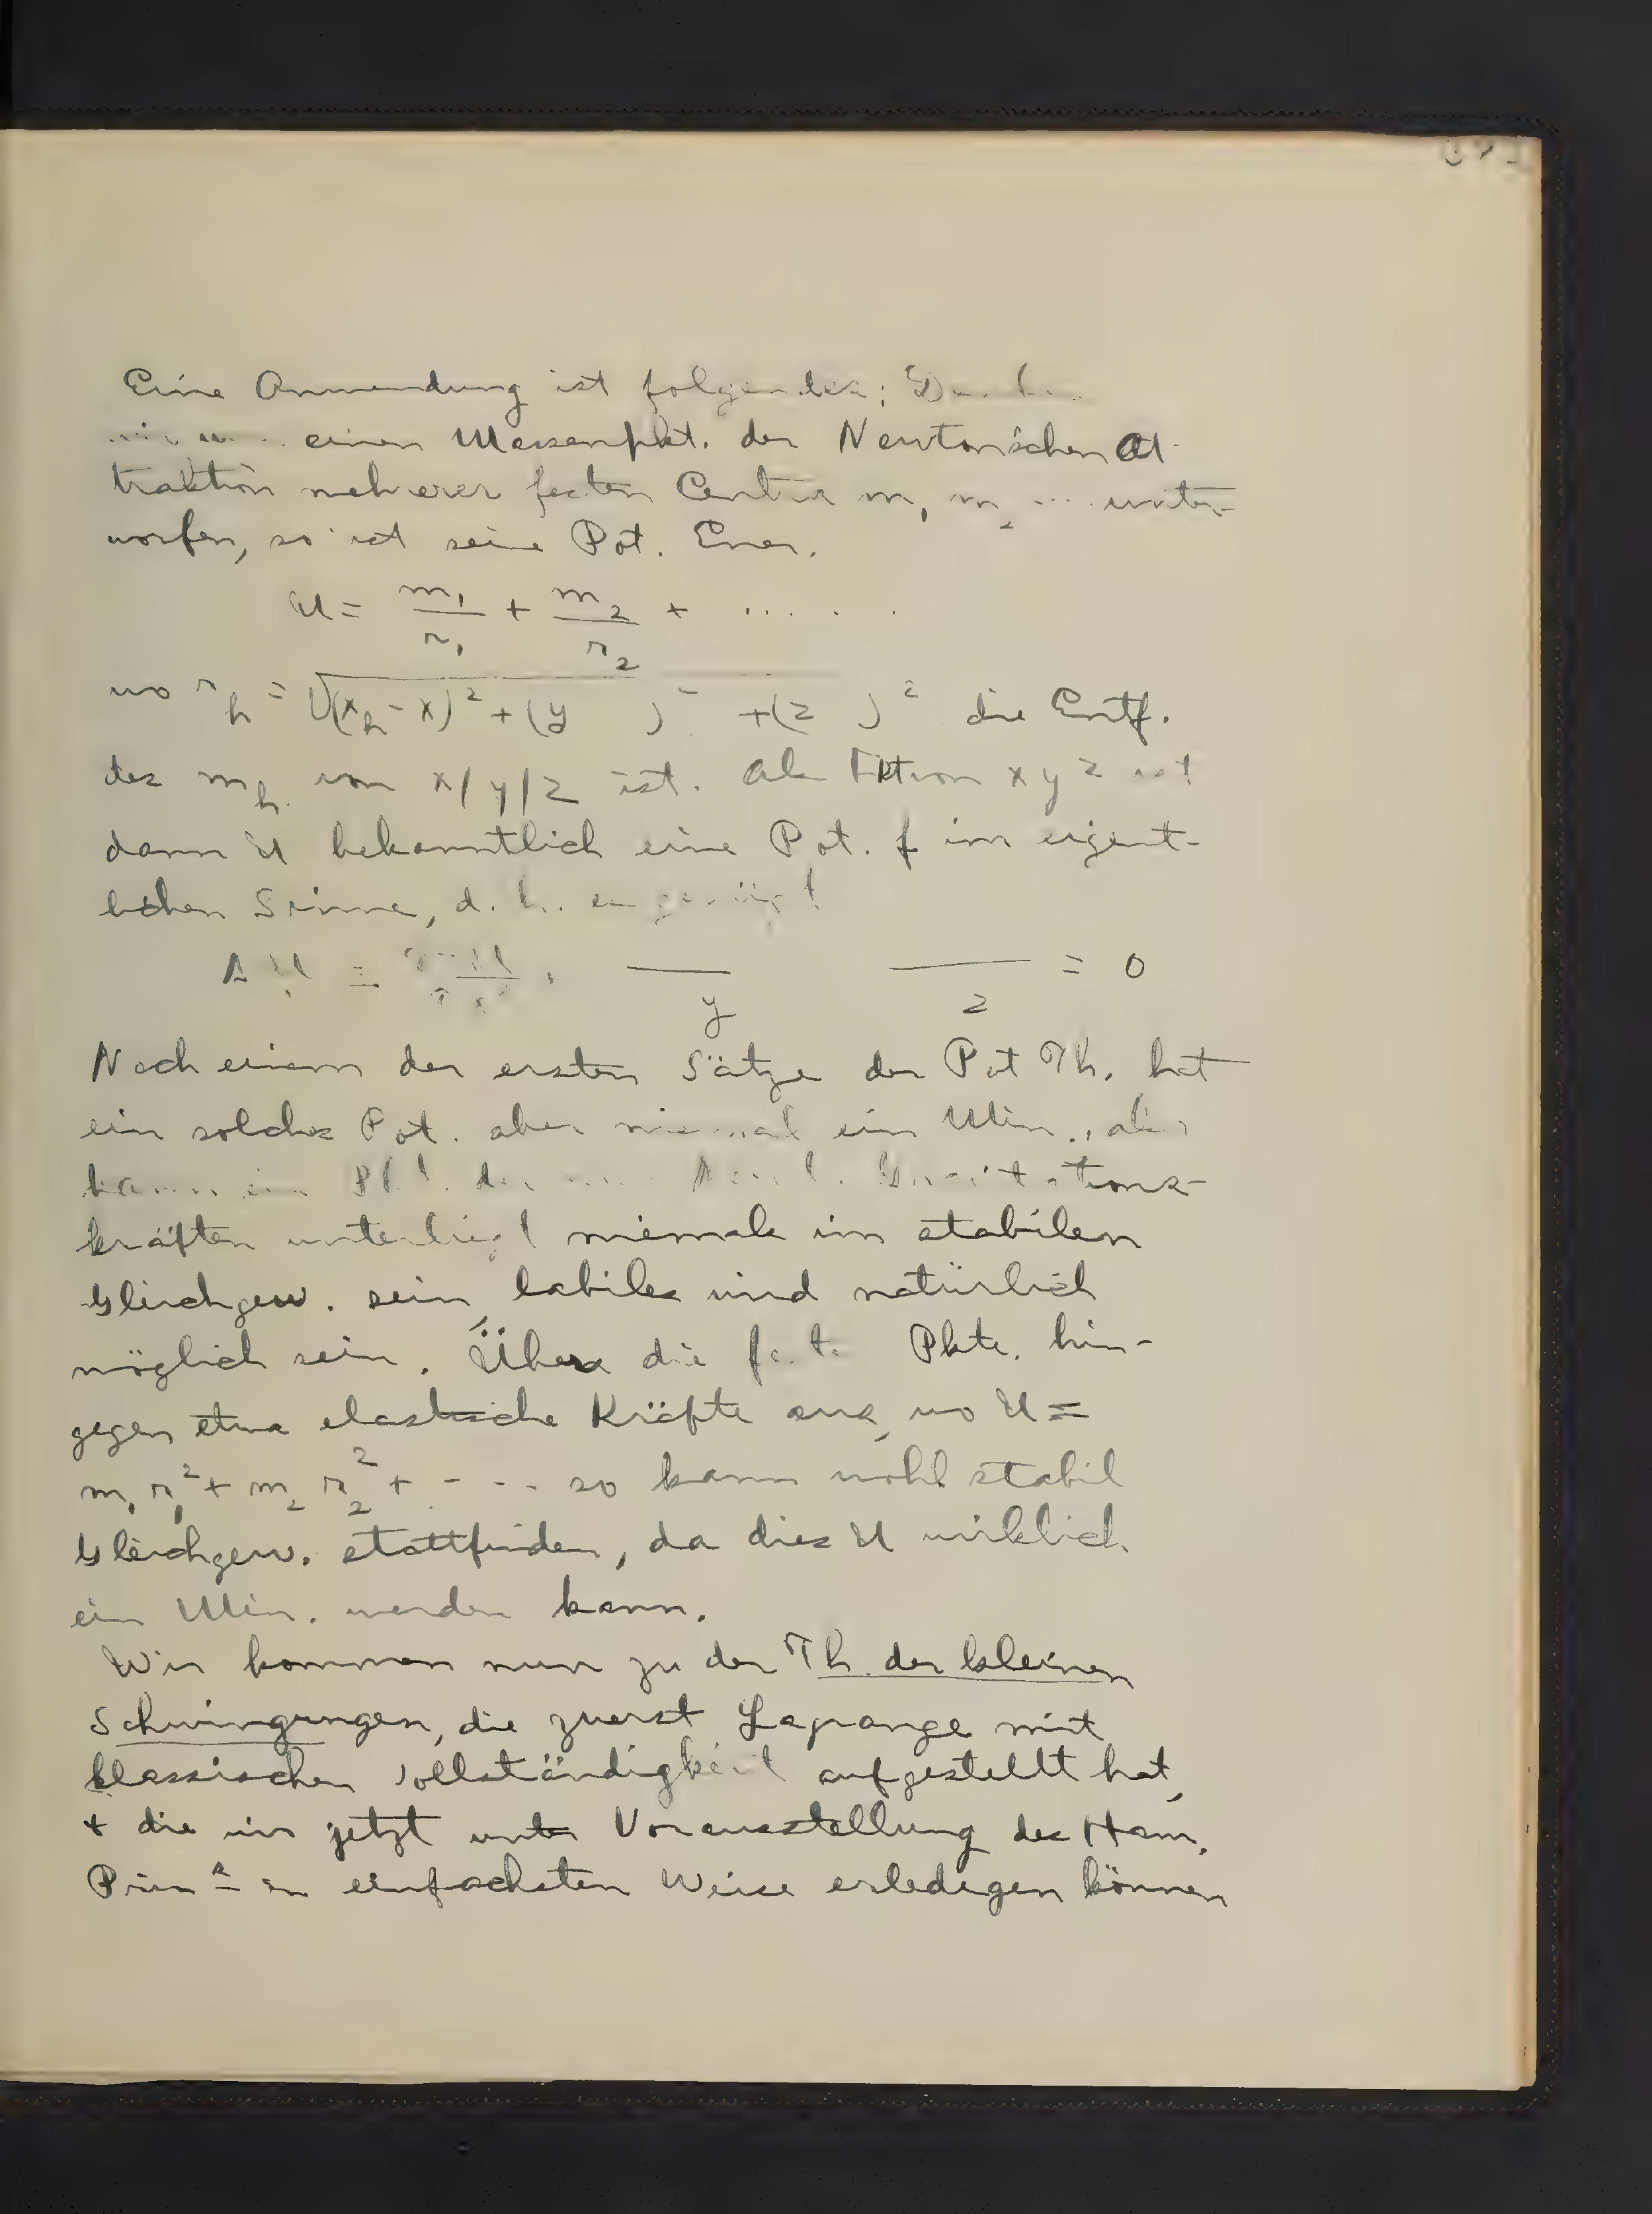 Eine Anwendung ist folgendes:
einen Massenpkt. der Newtonschen At
traktion mehrerer festen Centra m₁ m₂ ... unter-
worfen, so ist seine Pot. Ener.
U = m₁/r₁ + m₂/r₂ + ......
wo r_h = √(x_h - x)² + (y )² + (z )² die Entf.
des m_h von x/y/z ist. Als Fktion x y z ist
dann U bekanntlich eine Pot. f im eigent-
lichen Sinne, d. h. es genügt
Δ U = y z = 0
Nach einem der ersten Sätze der Pot Th. hat
ein solches Pot. aber niemal ein Min.,
kann ein Gravitations-
kräften unterliegt niemals im stabilen
Gleichgew. sein, labiles wird natürlich
möglich sein. Üben die Pkte. hin-
gegen etwa elastische Kräfte aus, wo U =
m₁ r₁² + m₂ r₂² + - - - so kann wohl stabil
Gleichgew. stattfinden, da dies U wirklich
ein Min. werden kann.
Wir kommen nun zu der Th. der kleinen
Schwingungen, die zuerst Lagrange mit
klassischen Vollständigkeit aufgestellt hat,
+ die wir jetzt unter Voranstellung des Ham.
Prin in einfachsten Weise erledigen können